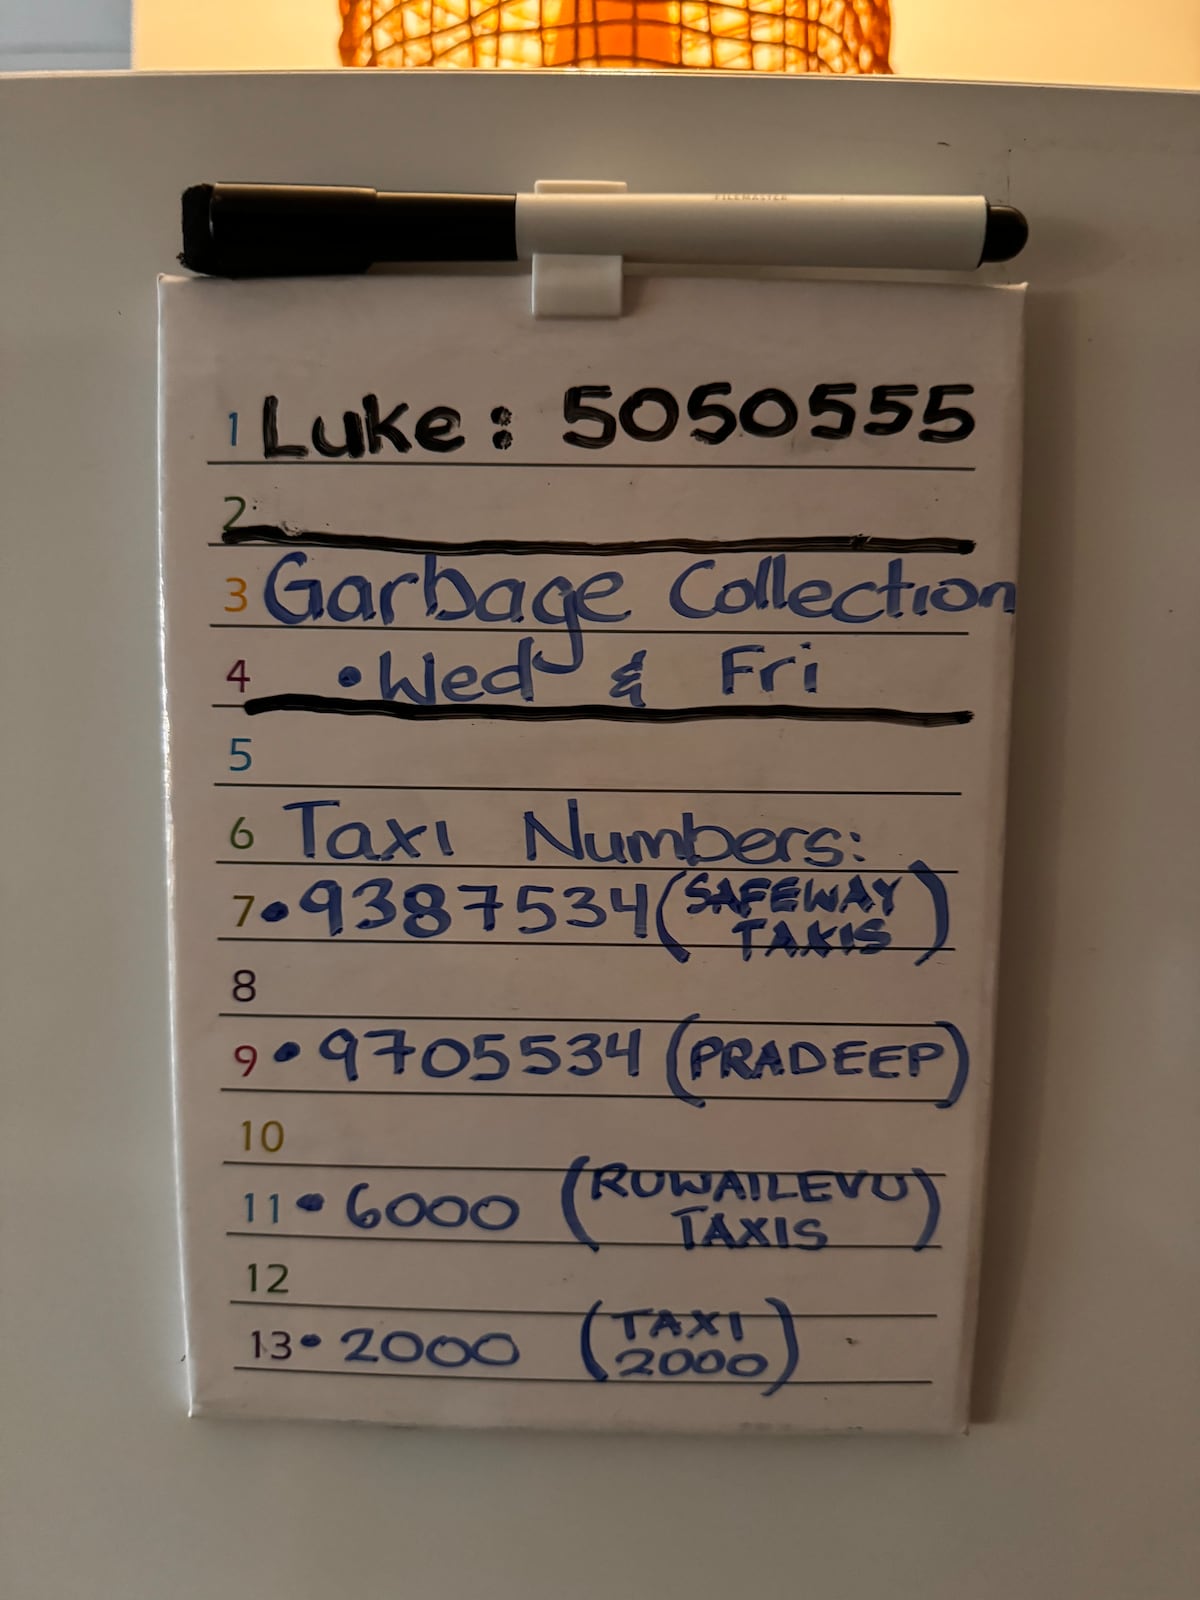 FILEMASTER
1 Luke: 5050555
2
3 Garbage Collection
4 • Wed & Fri
5
6 Taxi Numbers:
7 • 9387534 (SAFEWAY
TAXIS)
8
9 • 9705534 (PRADEEP)
10
11 • 6000 (RUWAILEVU
TAXIS)
12
13 • 2000 (TAXI
2000)